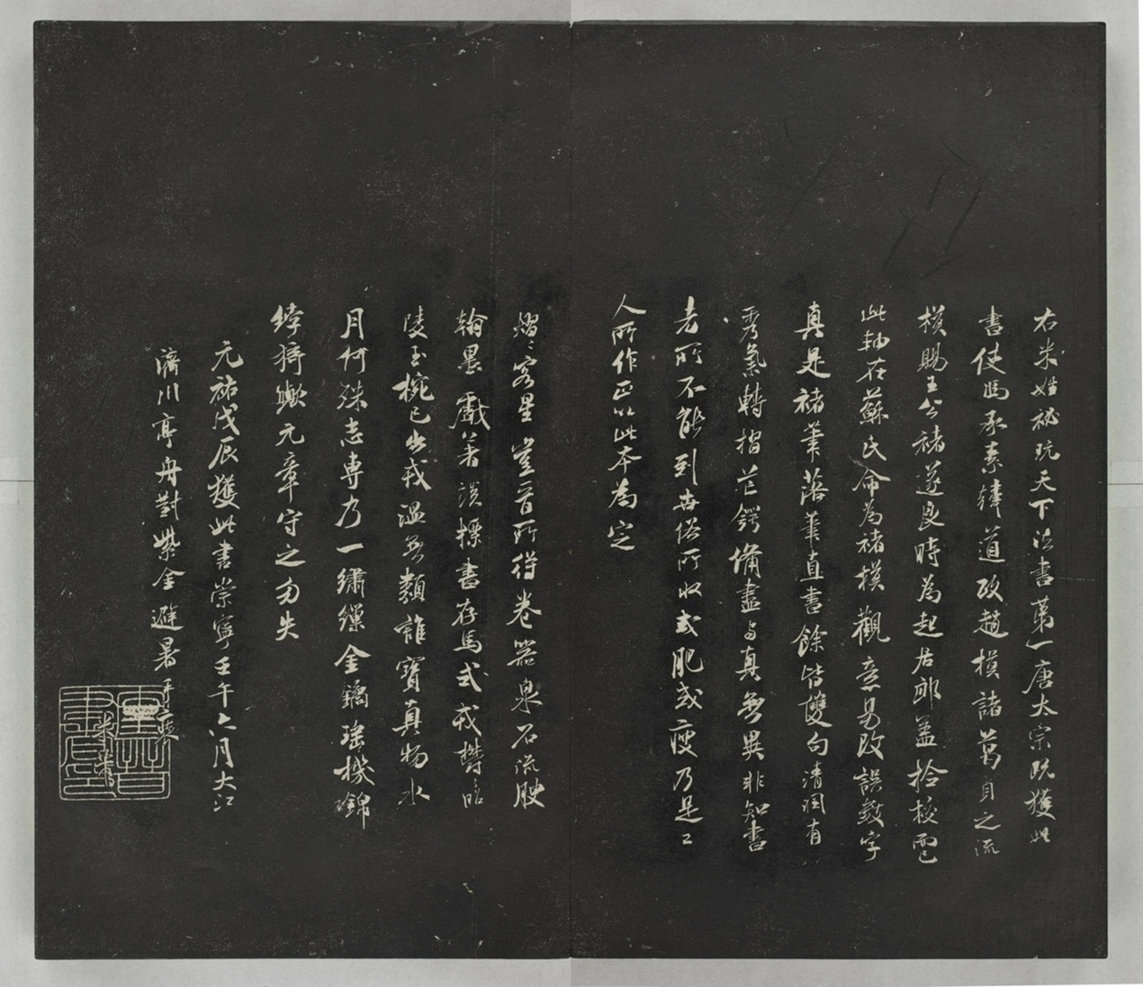 右米姓秘玩天下法書第一唐太宗既獲此
書使馮承素韓道政趙模諸葛貞之流
模賜王公褚遂良時為起居郎蓋撿校而已
此軸在蘇氏命為褚模觀意易改誤數字
真是褚筆落筆直書餘皆雙勾清潤有
秀氣轉摺芒鍔備盡与真無異非知書
者所不能到世俗所收或肥或瘦乃是工
人所作正以此本為定
熠〻客星豈晉所得卷器泉石流腴
翰墨戲著談標書存焉式戎欝昭
陵玉椀已出戎溫無類誰寶真物水
月何殊志專乃一繡繅金鐍瑤機錦
綷猗歟元章守之勿失
元祐戊辰獲此書崇寧壬午六月大江
濟川亭舟對紫金避暑手裝